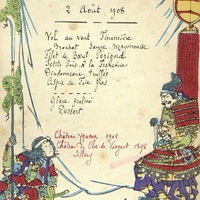 2 Août 1908
Vol au vent Financière
Brochet Sauce Mayonnaise
Filet de Bœuf Périgord
Petits Pois à la Française
Dindonneaux Truffés
Aspic de Foie Gras
Glace praliné
Dessert
Château Yquem
Château du Clos de Vougeot
Sillery